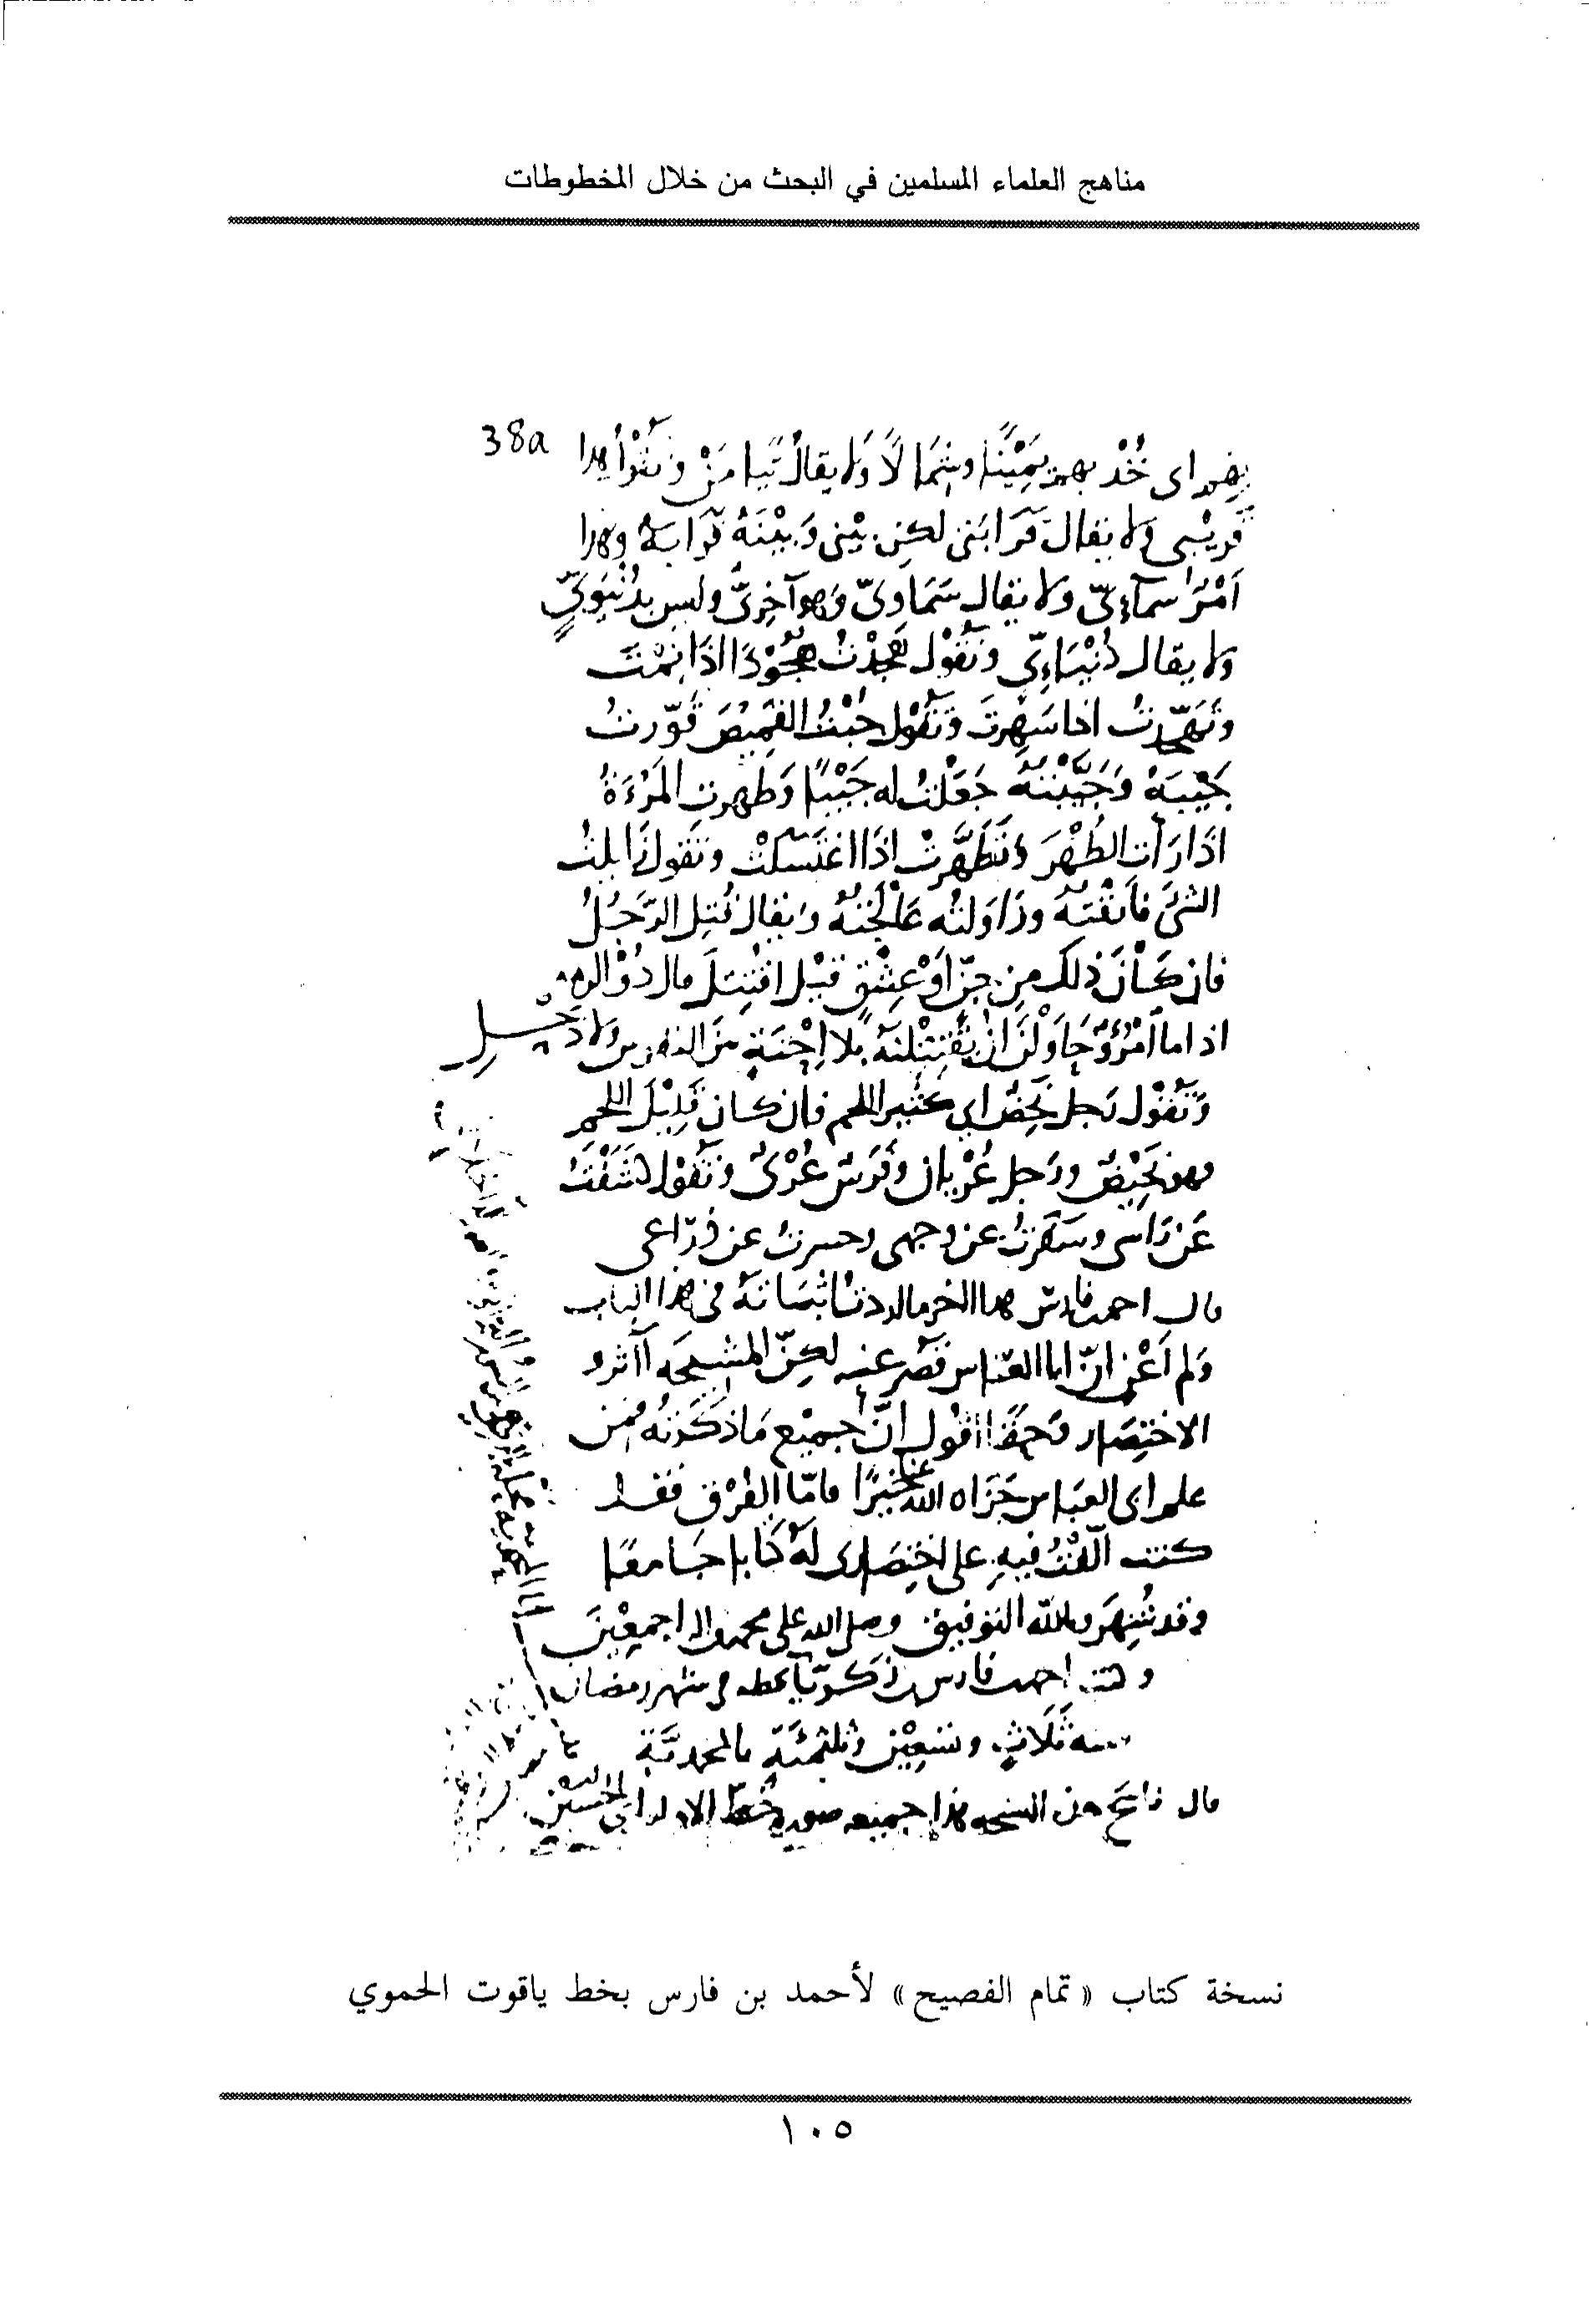 مناهج العلماء المسلمين في البحث من خلال المخطوطات
38a
اى خُذ بهم يَمِيْنًا وشِمَالًا وَلا يقالُ تَيا مَنْ وتَقُوْلُ هذا
قريْبى ولا يقال قَرابَتى لكن بيْنى وَبيْنَهُ قَرَابةٌ وهذا
اَمْرٌ سمآءِىّ ولا يقال سَمَاوىّ وَهو آخِرىّ وليس بدُنْيَوِىّ
ولا يقال دُنْيَاءِىّ وتَقُوْل هَجَدْتُ هُجُوْدًا اذَا نِمْتَ
وتَهَجّدتُ اذا سَهِرتَ وتَقُوْل جُبْتُ القَمِيْصَ قَوّرتُ
جَيْبَهُ وَجَيَّبْتُهُ جَعَلْتُ له جَيْبًا وَطَهرتِ المَرْءَةُ
اذَا رَأت الطُهْرَ وتَطَهَّرتْ اذَا اغتَسَلَتْ وتَقول زَايلتُ
الشئَ فارَقْتُهُ وزَاوَلتُه عَالَجْتُهُ ويقال قُتِل الرّجُلُ
فان كَانَ ذلك من جِنّ اَوْ عِشْقٍ قيْل اقتُتِلَ قال ذوْ الرمه
اذا ما اَمْرُؤٌ حَاوَلْنَ انْ يَقْتَتِلْنَهُ بلا اِحْنَةٍ بَيْنَ النفوس ولا ذَحْلِ
وَتَقُوْل رَجل نَحِضٌ اى كثير اللحم فان كان قَلِيْلَ اللحمِ
فهو نَحِيْضٌ ورَجل عُرْيان وفَرَسٌ عُرْىٌ وتَقوْل كَشَفْتُ
عَنْ رَاسى وسَفَرْتُ عن وجهى وحسرتُ عن ذراعى
قال احمد بن فارس هذا اخر ما اردتُ اثْبَاتَهُ فى هذا الباب
وَلم اَعْنِ انّ ابا العبّاس قَصّر عنه لكنّ المشيخه آثروا
الاختِصَار وحَقًّا اقول اِنّ جميْع مَا ذكَرتُه فمن
علم ابى العبّاس جَزَاه الله عنّا خيْرًا فامّا الفَرْق فقد
كنت اَلّفْتُ فيهِ على اختِصَارى لَهُ كتابا جَامعًا
وقد شُهِرَ وبالله التوفيق وصلى الله على محمد واله اجمعِيْنَ
وكتب احمد بن فارس بن زكرياء بخطه فى شهر رمضان
سنه ثَلَاثٍ وتسعِيْن وثلثمئةٍ بالمحمديّة
قال ناسخ هذه النسخه هذا جميعه صورة خط الامام ابى الحسين
نسخة كتاب « تمام الفصيح » لأحمد بن فارس بخط ياقوت الحموي
١٠٥